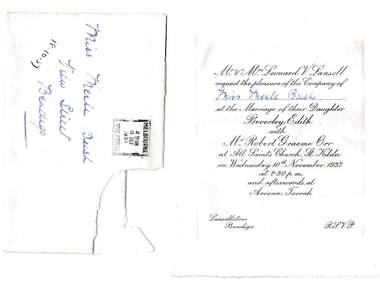 Miss Merle Bush
View Street
Bendigo
MELBOURNE
4 PM
OCT
1937
VICTORIA
Mr. & Mrs. Leonard V. Lansell
request the pleasure of the Company of
Miss Merle Bush
at the Marriage of their Daughter
Beverley Edith
with
Mr. Robert Graeme Orr
at All Saints' Church, St. Kilda
on Wednesday 10th November 1937
at 2.30 p.m.
and afterwards at
Avoona, Toorak
Lansellstow
Bendigo
R.S.V.P.